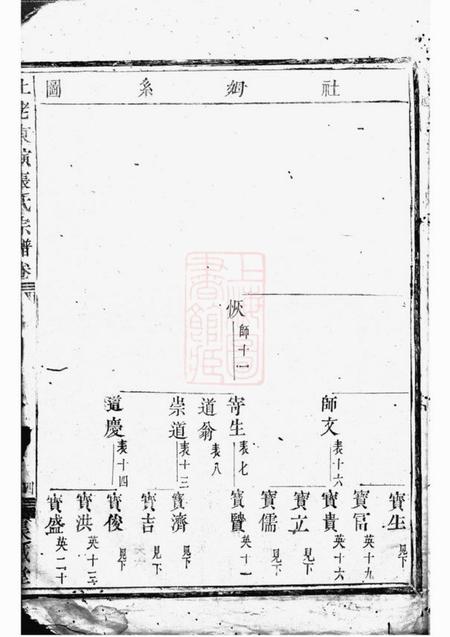 社㛐系圖
東演張氏宗譜卷
四
上海圖書館藏
恢 師十一
師文 表十六
寄生 表七
道翁 表八
崇道 表十三
道慶 表十四
寶生 見下
寶富 英十九
寶貴 英十六
寶立 見下
寶儒 見下
寶賢 英十一
寶濟 見下
寶吉 見下
寶俊 見下
寶洪 英十三
寶盛 英二十